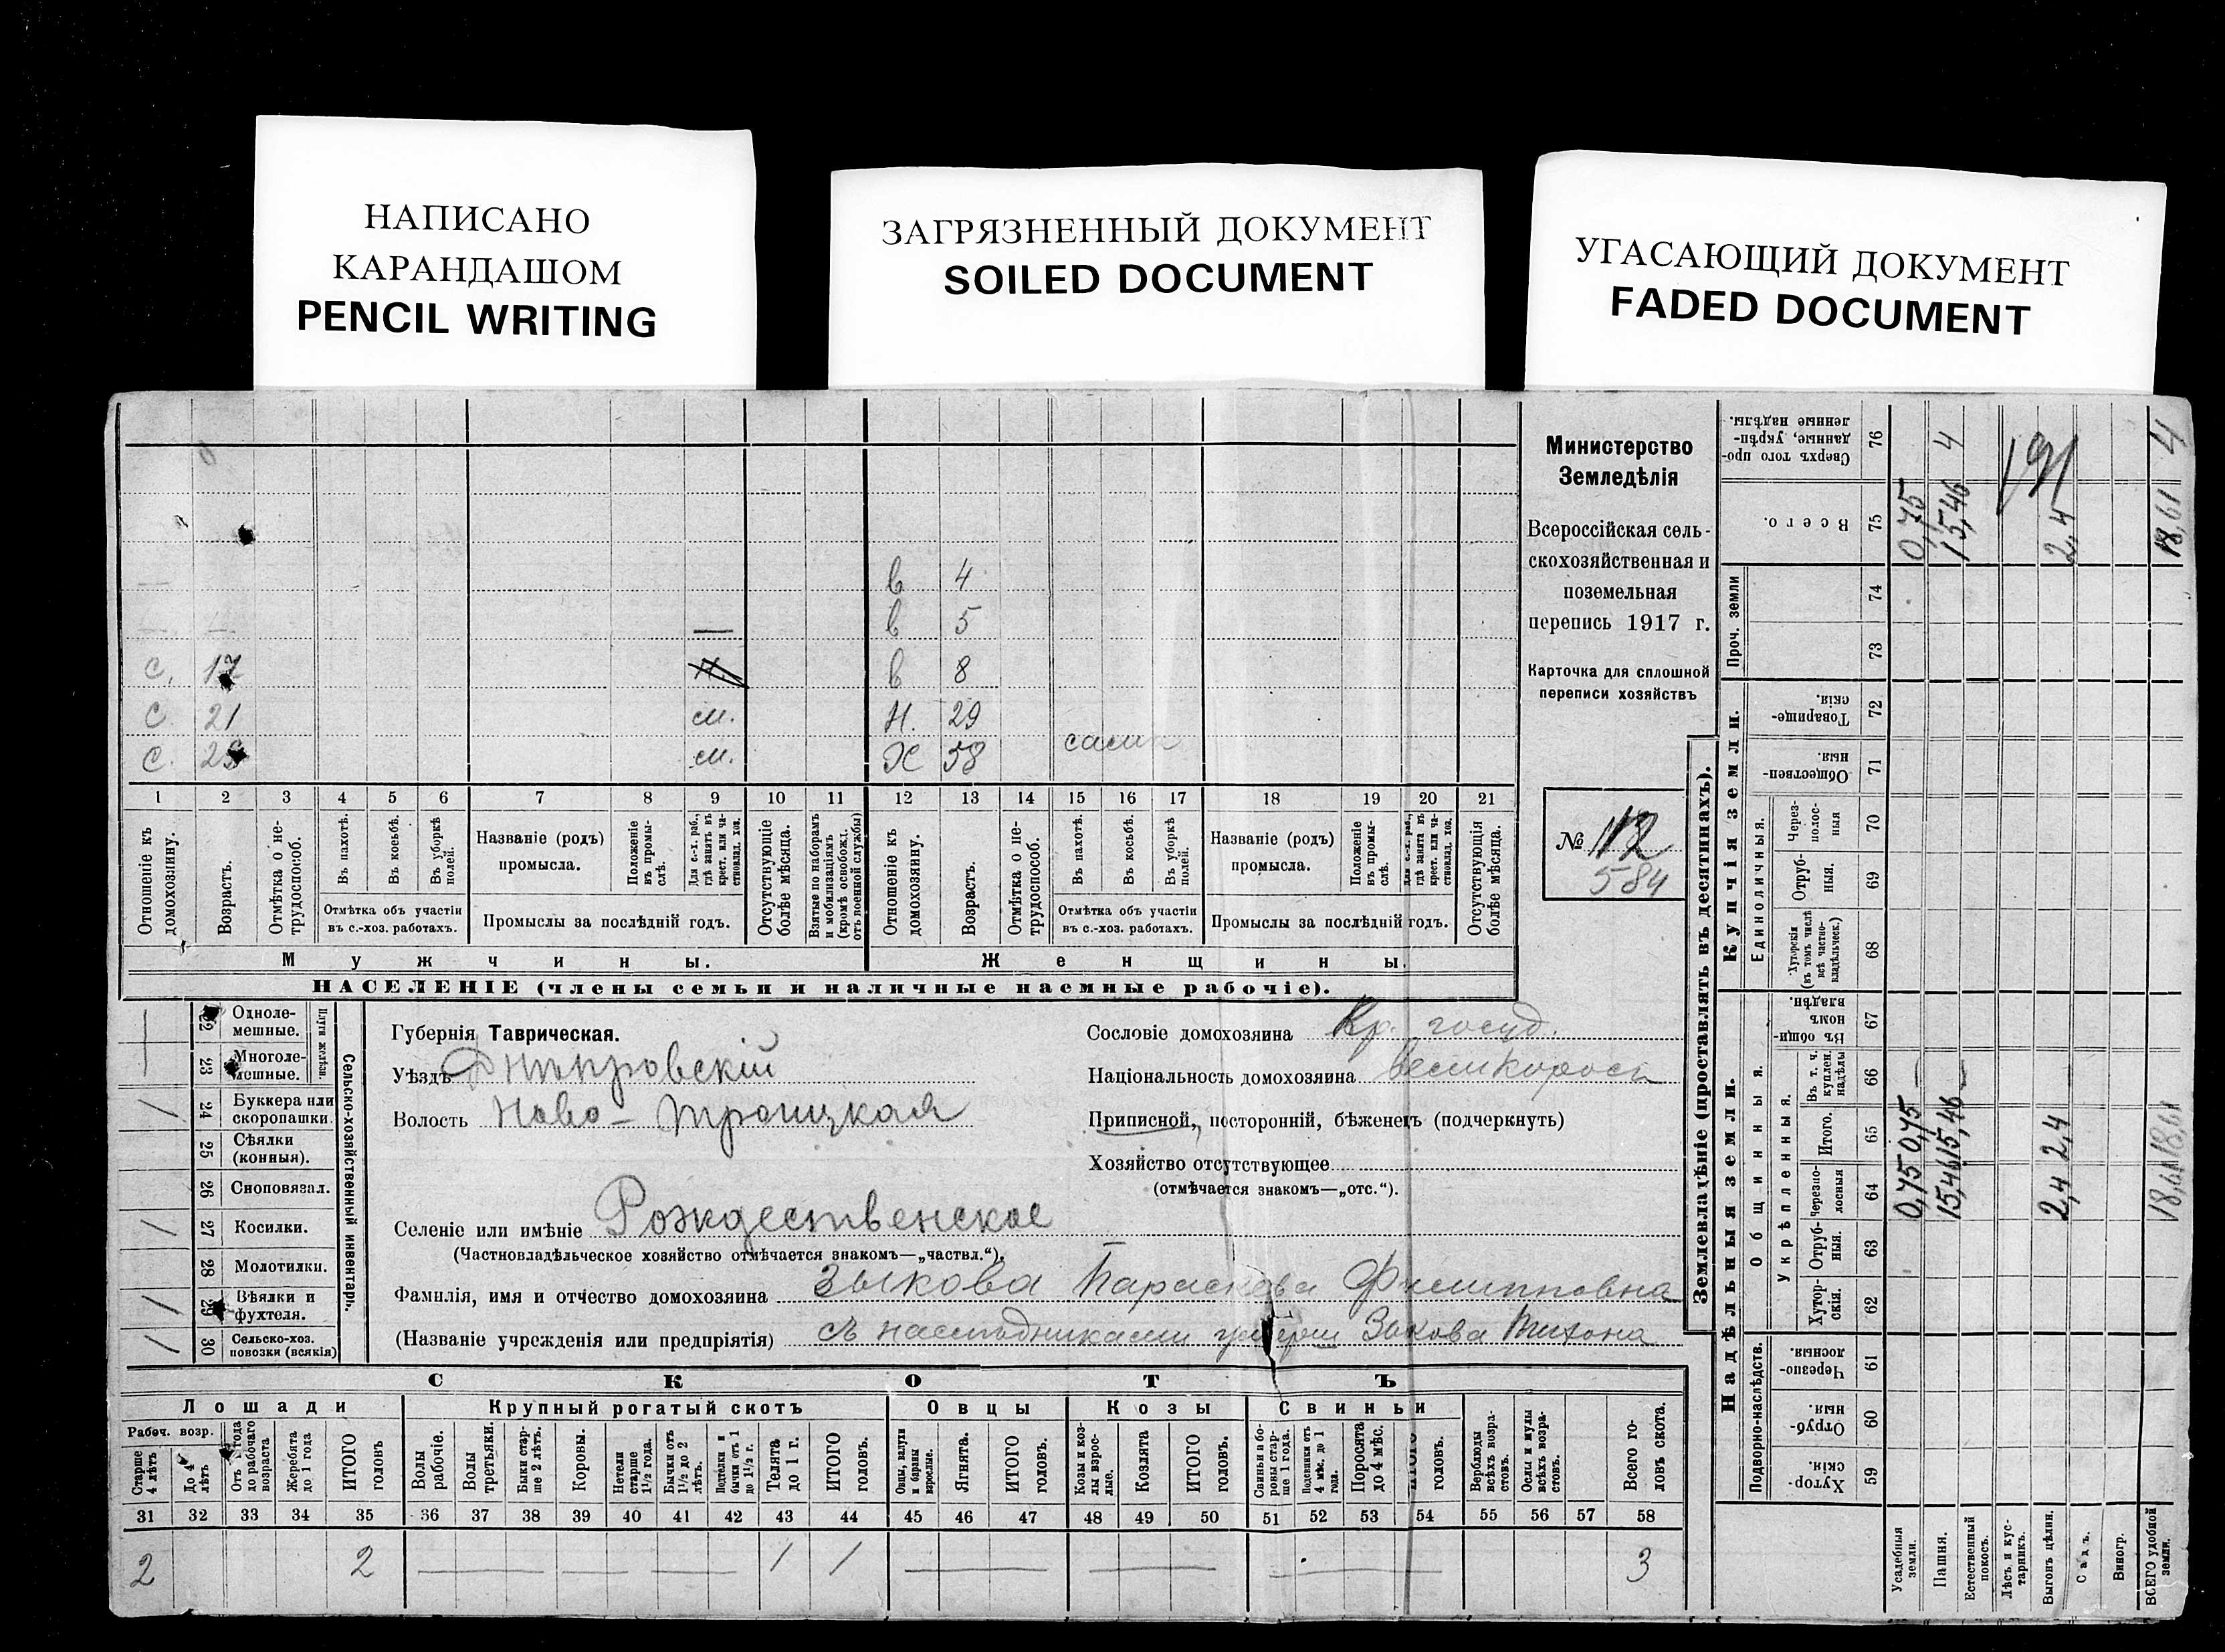 НАПИСАНО
КАРАНДАШОМ
PENCIL WRITING
ЗАГРЯЗНЕННЫЙ ДОКУМЕНТ
SOILED DOCUMENT
УГАСАЮЩИЙ ДОКУМЕНТ
FADED DOCUMENT
в 4
в 5
С. 17 в 8
С. 21 см. Н. 29
С. см. Х 58
1 2 3 4 5 6 7 8 9 10 11 12 13 14 15 16 17 18 19 20 21
Отношеніе къ домохозяину.
Возрастъ.
Отмѣтка о не-трудоспособ.
Въ пахотѣ.
Въ косьбѣ.
Въ уборкѣ полей.
Отмѣтка объ участіи
въ с.-хоз. работахъ.
Названіе (родъ)
промысла.
Положеніе въ промы-слѣ.
Для с.-х. раб., гдѣ занятъ въ крест. или ча-стновлад. хоз.
Промыслы за послѣдній годъ.
Отсутствующіе болѣе мѣсяца.
Взятые по наборамъ и мобилизаціямъ (кромѣ освобожд. отъ военной службы)
Отношеніе къ домохозяину.
Возрастъ.
Отмѣтка о не-трудоспособ.
Въ пахотѣ.
Въ косьбѣ.
Въ уборкѣ полей.
Отмѣтка объ участіи
въ с.-хоз. работахъ.
Названіе (родъ)
промысла.
Положеніе въ промы-слѣ.
Для с.-х. раб., гдѣ занята въ крест. или ча-стновлад. хоз.
Промыслы за послѣдній годъ.
Отсутствующія болѣе мѣсяца.
Мужчины.
Женщины.
НАСЕЛЕНІЕ (члены семьи и наличные наемные рабочіе).
Министерство
Земледѣлія
Всероссійская сель-
скохозяйственная и
поземельная
перепись 1917 г.
Карточка для сплошной
переписи хозяйствъ
№ 112
584
22 Одноле-мешные.
23 Многоле-мешные.
Плуги желѣзн.
24 Буккера или скоропашки.
25 Сѣялки (конныя).
26 Сноповязал.
27 Косилки.
28 Молотилки.
29 Вѣялки и фухтеля.
30 Сельско-хоз. повозки (всякія)
Сельско-хозяйственный инвентарь.
Губернія Таврическая.
Уѣздъ Днѣпровскій
Волость Ново-Троицкая
Селеніе или имѣніе Рождественское
(Частновладѣльческое хозяйство отмѣчается знакомъ—„частвл.“).
Фамилія, имя и отчество домохозяина Зыкова Параскева Филипповна
(Названіе учрежденія или предпріятія) съ наслѣдниками Зыкова Тихона
Сословіе домохозяина Кр. госуд.
Національность домохозяина великоросъ
Приписной, посторонній, бѣженецъ (подчеркнуть)
Хозяйство отсутствующее
(отмѣчается знакомъ—„отс.“).
СКОТЪ
Лошади
Крупный рогатый скотъ
Овцы
Козы
Свиньи
Рабоч. возр.
Старше 4 лѣтъ
До 4 лѣтъ
Отъ 1 года до рабочаго возраста
Жеребята до 1 года
ИТОГО головъ
Волы рабочіе.
Волы третьяки.
Быки стар-ше 2 лѣтъ.
Коровы.
Нетели старше 1½ года.
Бычки отъ 1½ до 2 лѣтъ.
Подтелки и бычки отъ 1 до 1½ г.
Телята до 1 г.
ИТОГО головъ.
Овцы, валухи и бараны взрослые.
Ягнята.
ИТОГО головъ.
Козы и коз-лы взрос-лые.
Козлята
ИТОГО головъ.
Свиньи и бо-ровы стар-ше 1 года.
Подсвинки отъ 4 мѣс. до 1 года.
Поросята до 4 мѣс.
ИТОГО головъ.
Верблюды всѣхъ возра-стовъ.
Ослы и мулы всѣхъ возра-стовъ.
Всего го-ловъ скота.
31 32 33 34 35 36 37 38 39 40 41 42 43 44 45 46 47 48 49 50 51 52 53 54 55 56 57 58
2 2 1 1 3
Землевладѣніе (проставлять въ десятинахъ).
Надѣльныя земли.
Купчія земли.
Проч. земли
Подворно-наслѣдств.
Общинныя.
Укрѣпленныя.
Единоличныя.
Хутор-скія. 59
Отруб-ныя. 60
Черезпо-лосныя. 61
Хутор-скія. 62
Отруб-ныя. 63
Черезпо-лосныя 64
Итого. 65
Въ т. ч. куплен. надѣлы 66
Въ общин-номъ владѣн. 67
Хуторскія (въ томъ числѣ всѣ частно-владѣльческ.) 68
Отруб-ныя. 69
Через-полос-ныя 70
Обществен-ныя 71
Товарище-скія. 72
73
74
Всего. 75
Сверхъ того про-данные, укрѣп-ленные надѣлы. 76
Усадебныя земли.
Пашня.
Естественный покосъ.
Лѣсъ и кус-тарникъ.
Выгонъ цѣлин.
Садъ.
Виногр.
ВСЕГО удобной земли.
0,75 0,75 0,75
15,46 15,46 15,46 4
2,4 2,4 2,4
191
18,61 18,61 18,61 4